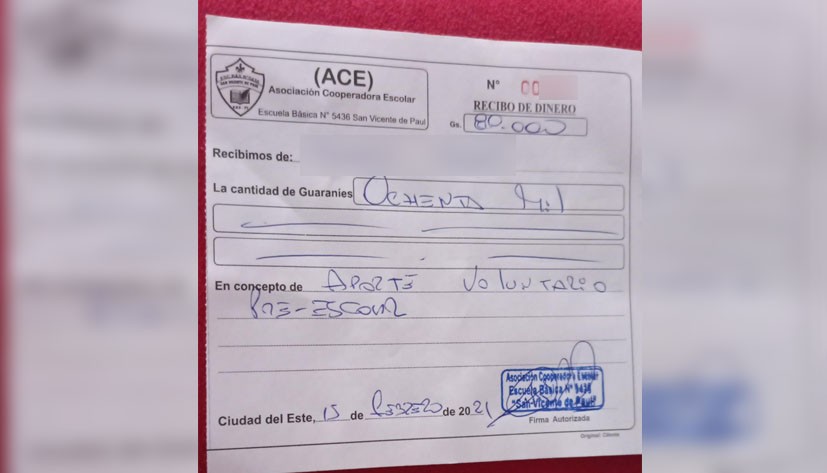 (ACE)
Asociación Cooperadora Escolar
Escuela Básica N° 5436 San Vicente de Paul
N° 00
RECIBO DE DINERO
Gs. 80.000
Recibimos de:
La cantidad de Guaranies Ochenta Mil
En concepto de APORTE VOLUNTARIO
PRE-ESCOLAR
Asociación Cooperadora Escolar
Escuela Básica N° 5436
"San Vicente de Paul"
Ciudad del Este, 15 de Febrero de 2021
Firma Autorizada
Original: Cliente